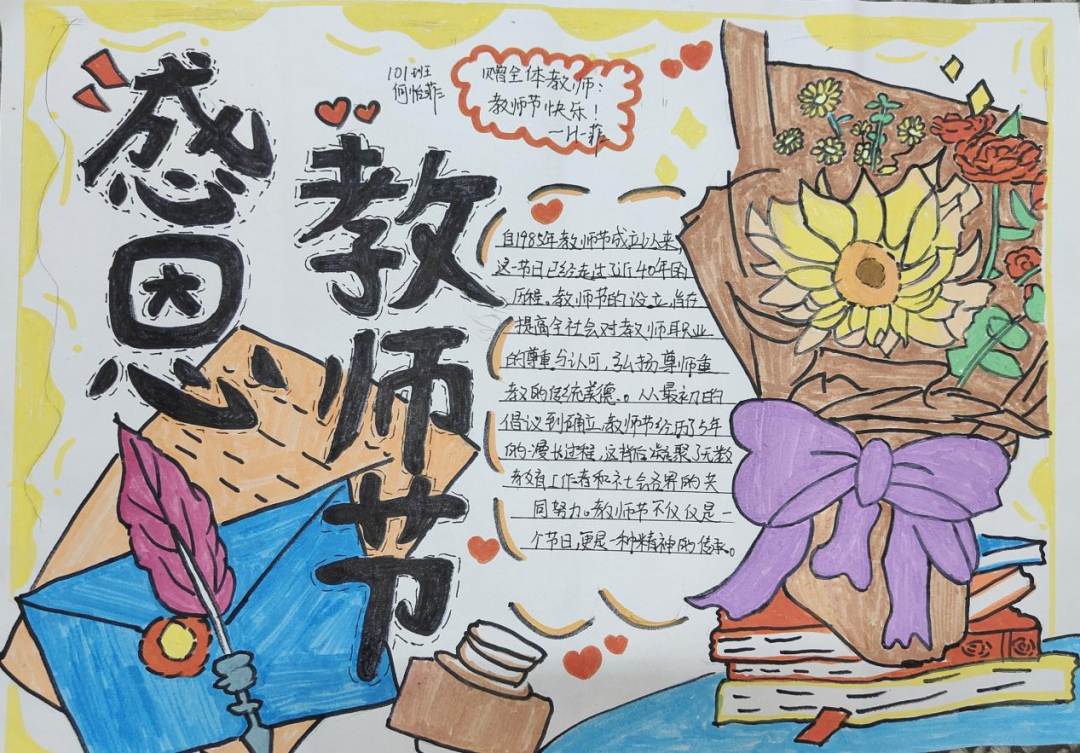 感恩
教师节
101班
何怡菲
赠全体教师：
教师节快乐！
一小菲
自1985年教师节成立以来
这一节日已经走过了近40年的
历程。教师节的设立，旨在
提高全社会对教师职业
的尊重与认可，弘扬尊师重
教的传统美德。从最初的
倡议到确立，教师节经历了5年
的漫长过程，这背后凝聚了无数
教育工作者和社会各界的共
同努力。教师节不仅仅是一
个节日，更是一种精神的传承。